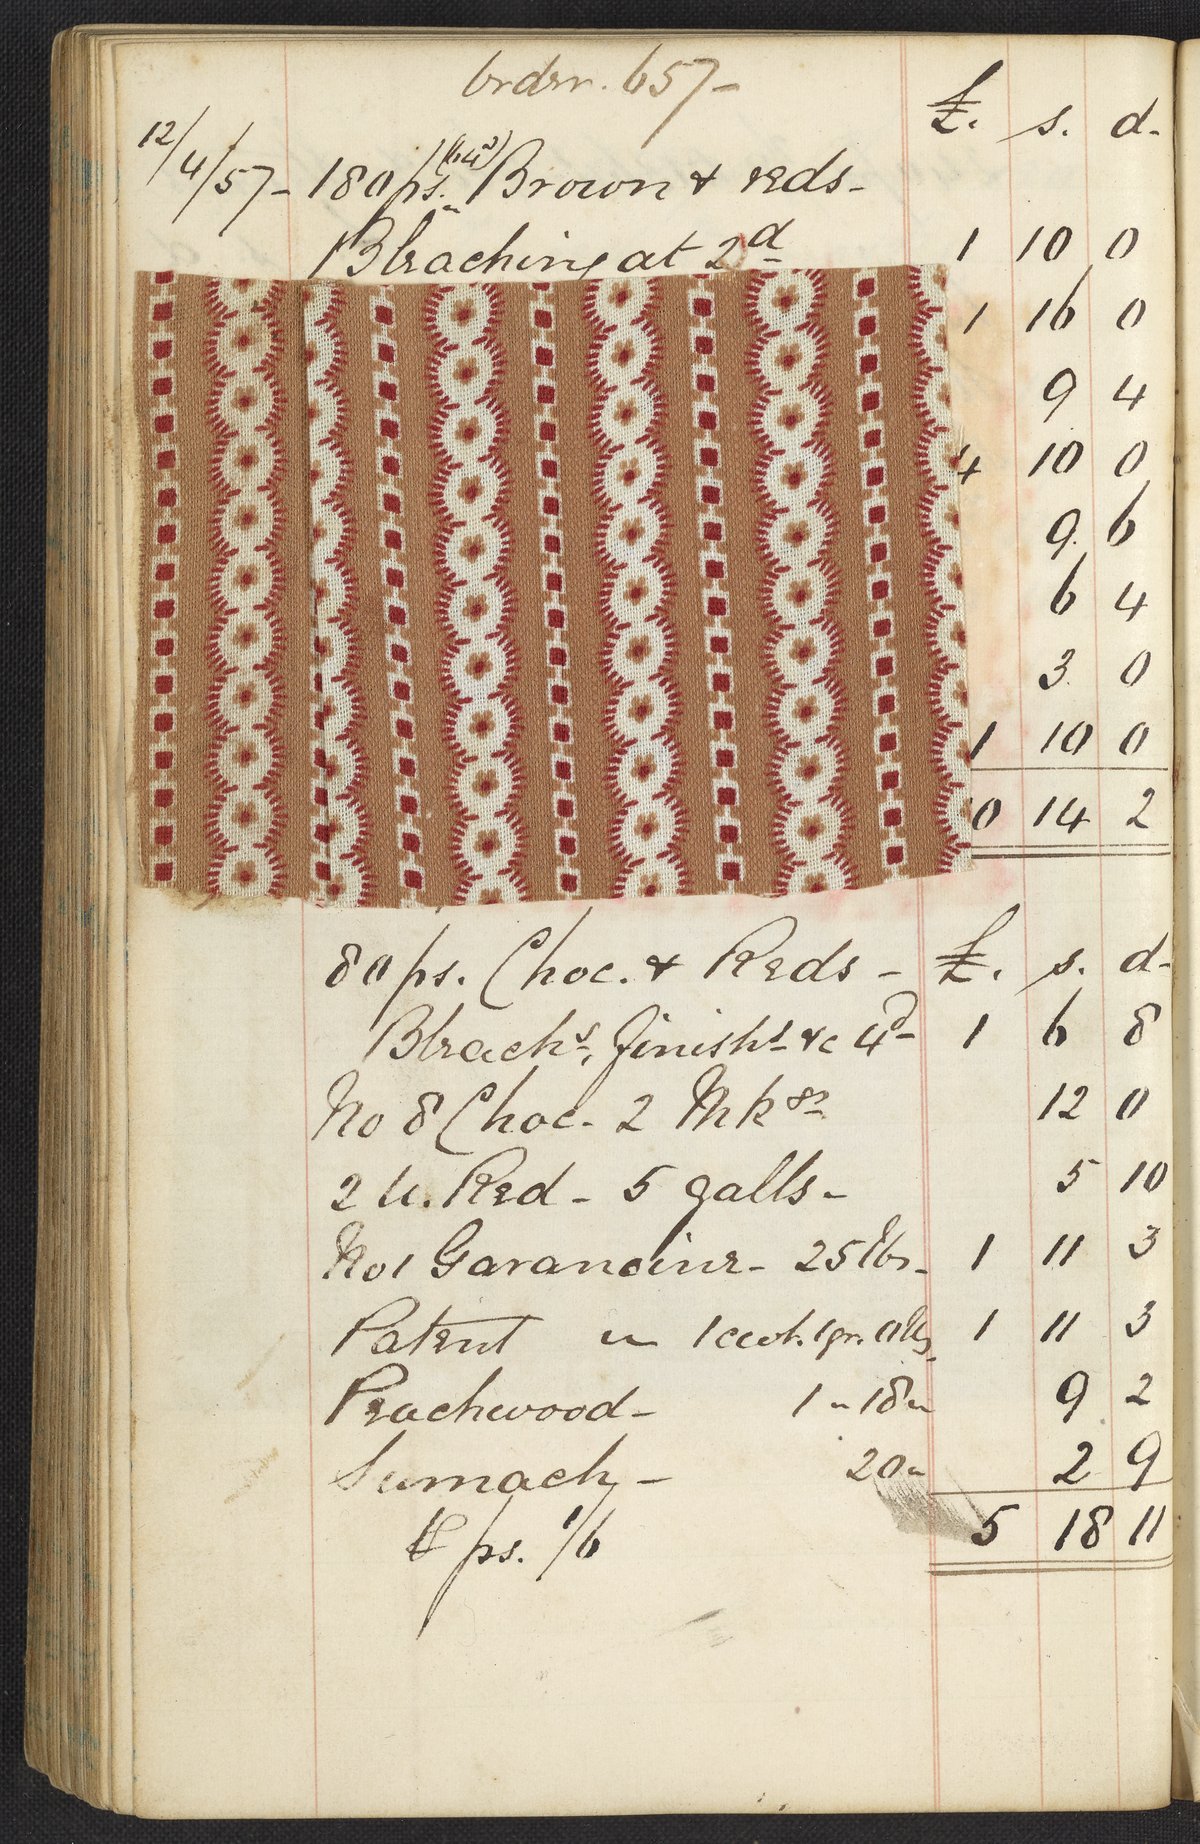 Order. 657-
£. s. d.
12/4/57- 180 ps. (64s) Brown & reds-
Bleaching at 2d 1 10 0
1 16 0
9 4
4 10 0
9 6
6 4
3 0
1 10 0
0 14 2
80 ps. Choc. & Reds - £. s. d-
Bleachs, finishs &c 4d- 1 6 8
No 8 Choc. 2 12 0
Red - 5 galls- 5 10
No 1 Garancine - 25 lbs- 1 11 3
Patent " 1 cwt. 1 qr. 0 lbs. 1 11 3
Peachwood- 1 " 18 " 9 2
Sumach - 20 " 2 9
5 18 11
ps. 1/6